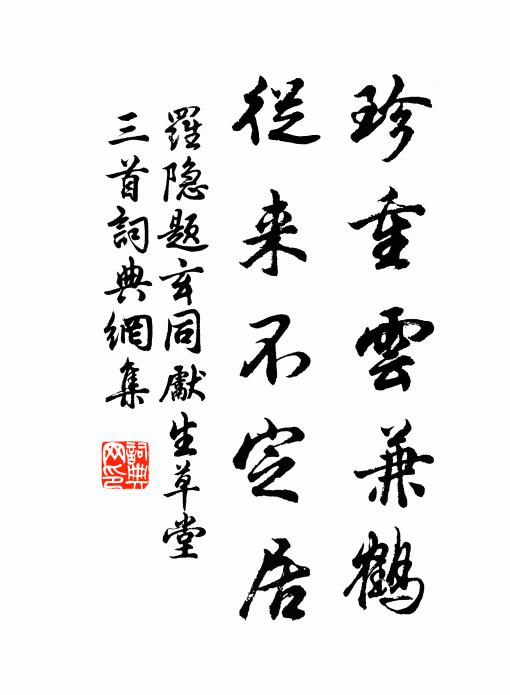 珍重雲兼鶴
從来不定居
羅隐题玄同獻生草堂
三首詞典網集
詞典
网印